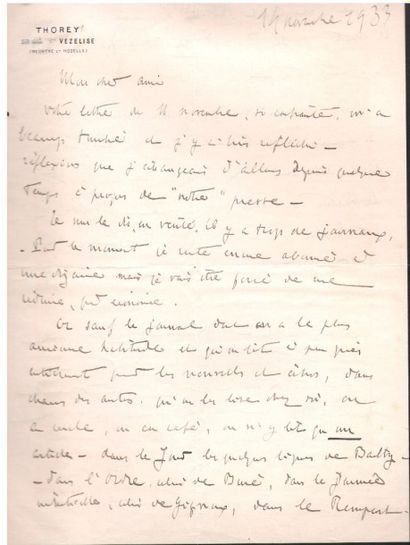 THOREY
VEZELISE
(MEURTHE ET MOSELLE)
14 novembre 1933
Mon cher ami
Votre lettre du 11 novembre, si m'a
beaucoup touché et j'y ai très réfléchi –
réflexions que j'échangeais d'ailleurs depuis quelque
temps à propos de "notre" presse –
Je me le dis, en vérité, il y a trop de journaux,
– Pour le moment je reste encore abonné à
une dizaine mais je vais être forcé de me
réduire, par économie.
Or sauf le journal dont on a le plus
ancienne habitude et qu'on lit à peu près
pour les nouvelles et échos, dans
chacun des autres, qu'on les lise chez soi, ou
au cercle, ou au café, on n'y lit qu'un
article – dans le Jour les quelques lignes de Bailby –
– dans l'Ordre, celui de Buré, dans la Journée
celui de dans le Rempart –